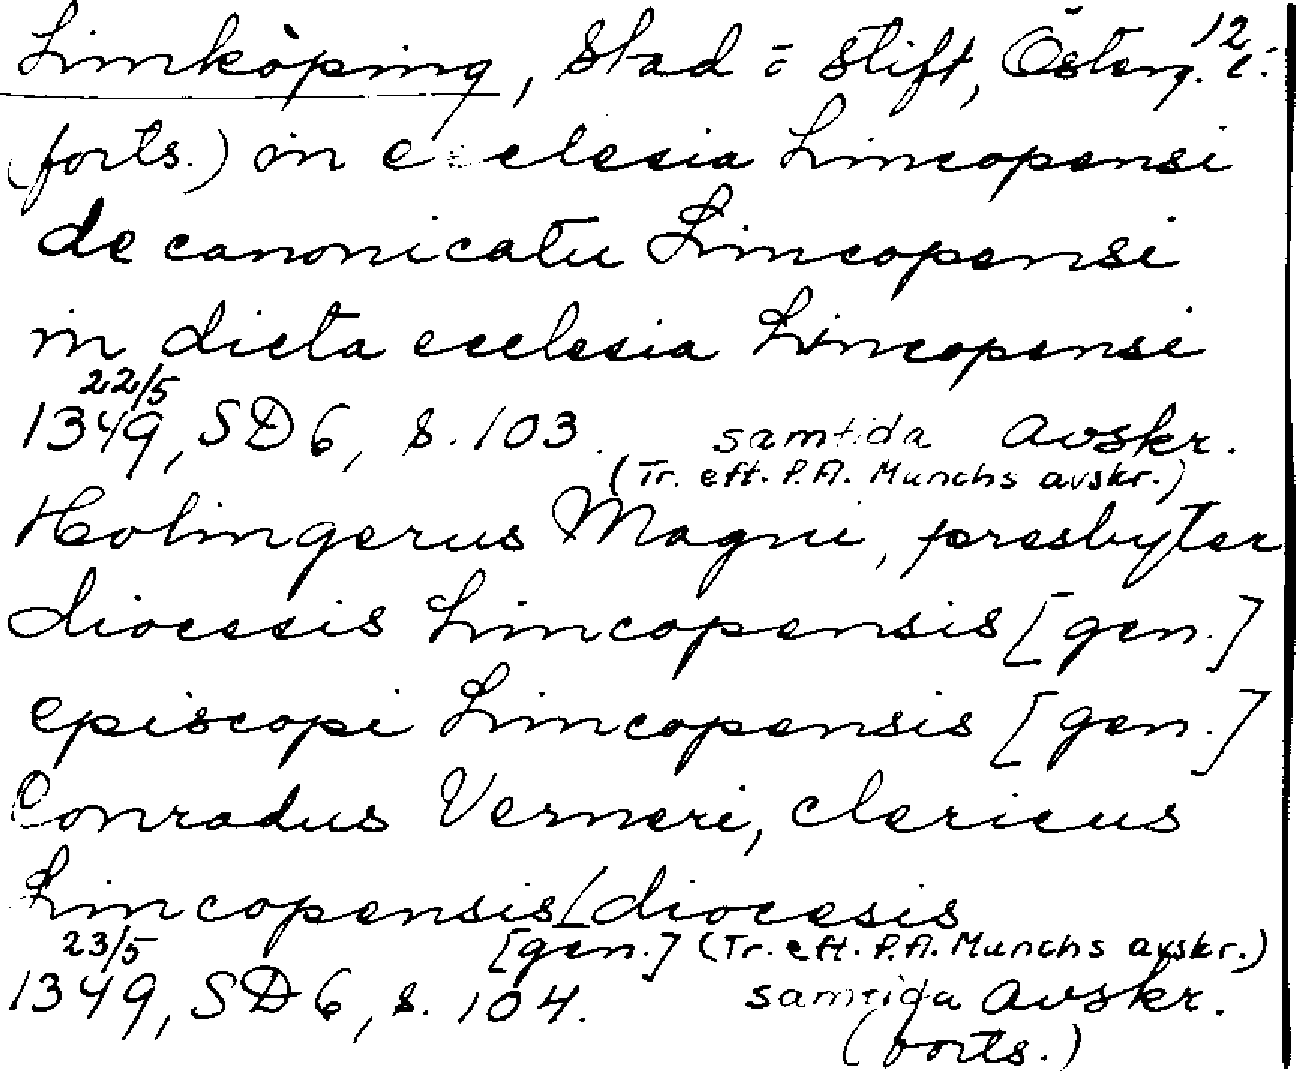 Linköping, Stad = Stift, Österg. 12
(forts.) in ecclesia Lincopensi
de canonicatu Lincopensi
in dicta ecclesia Lincopensi
22/5
1349, SD 6, s. 103. samtida Avskr.
(Tr. eft. P.A. Munchs avskr.)
Holmgerus Magni, presbyter
diocesis Lincopensis [gen.]
episcopi Lincopensis [gen.]
Conradus Verneri, clericus
Lincopensis/diocesis
23/5 [gen.] (Tr. eft. P.A. Munchs avskr.)
1349, SD 6, s. 104. samtida Avskr.
(forts.)